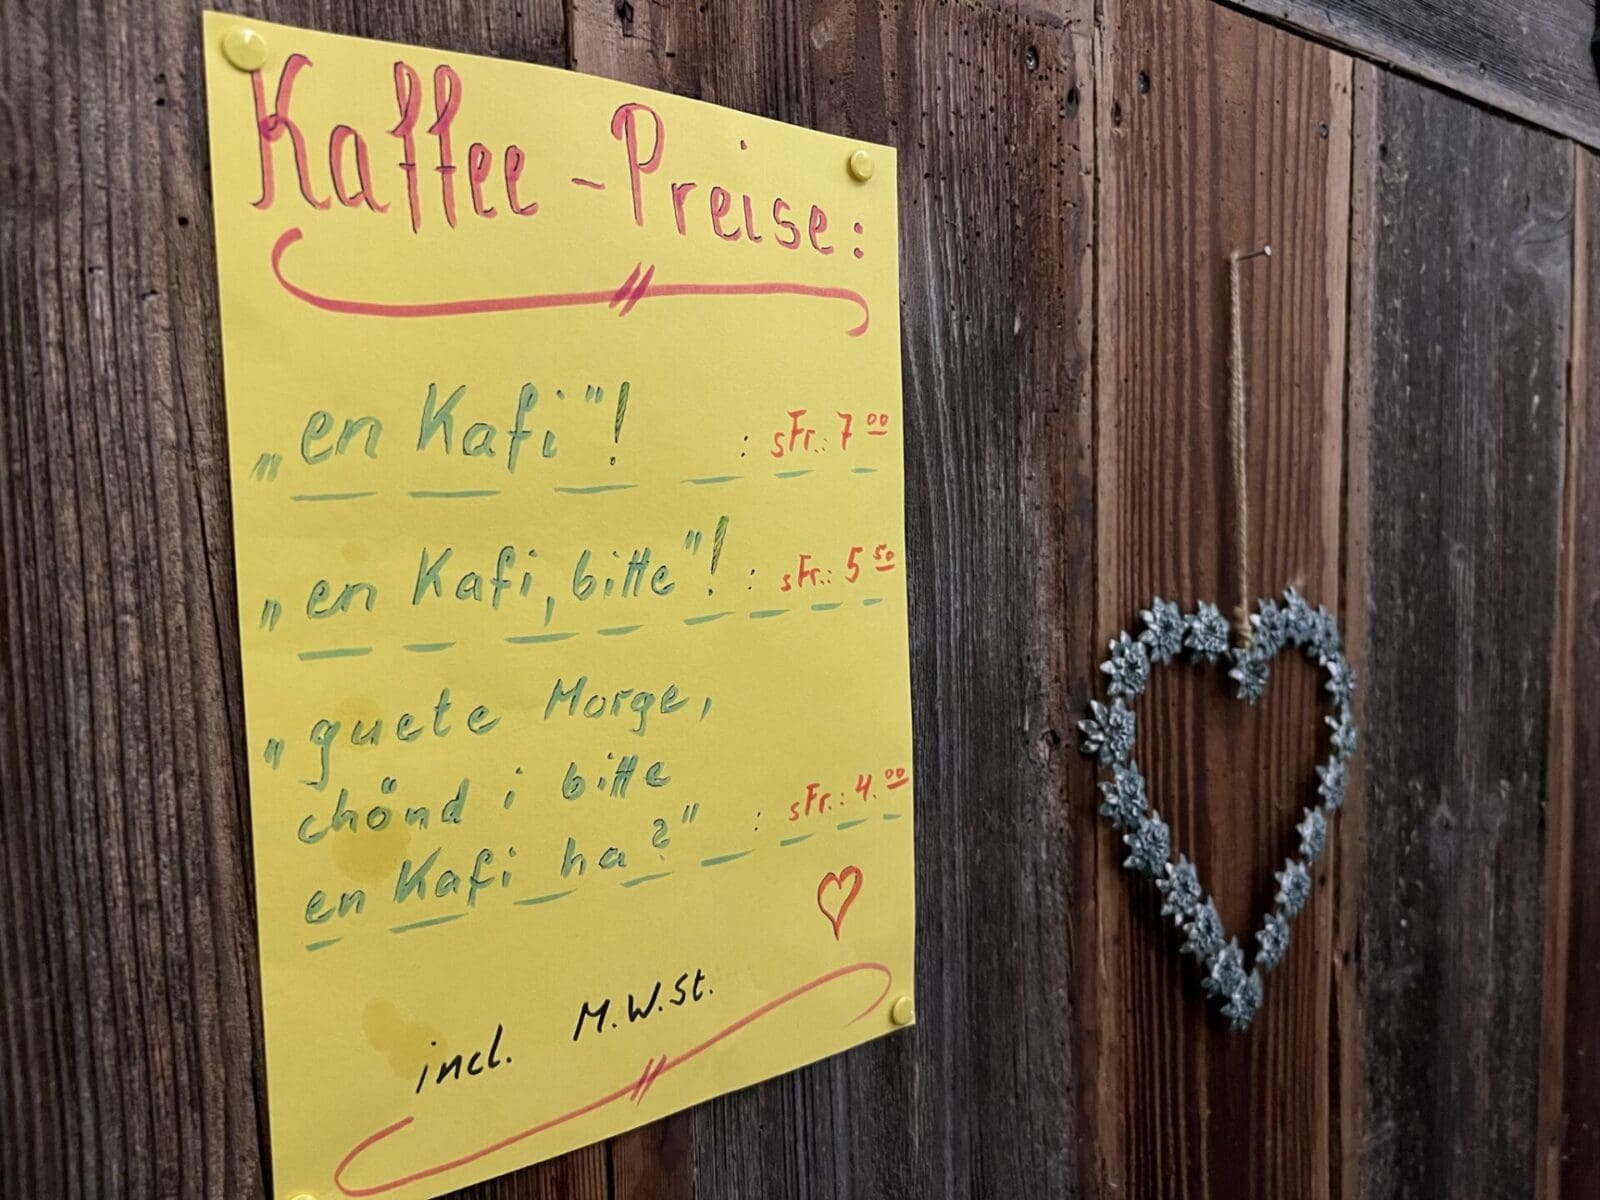 Kaffee - Preise:
„en Kafi"! : sFr.: 7 00
„en Kafi, bitte"! : sFr.: 5 50
„guete Morge,
chönd i bitte
en Kafi ha?" : sFr.: 4.00
incl. M.W.St.